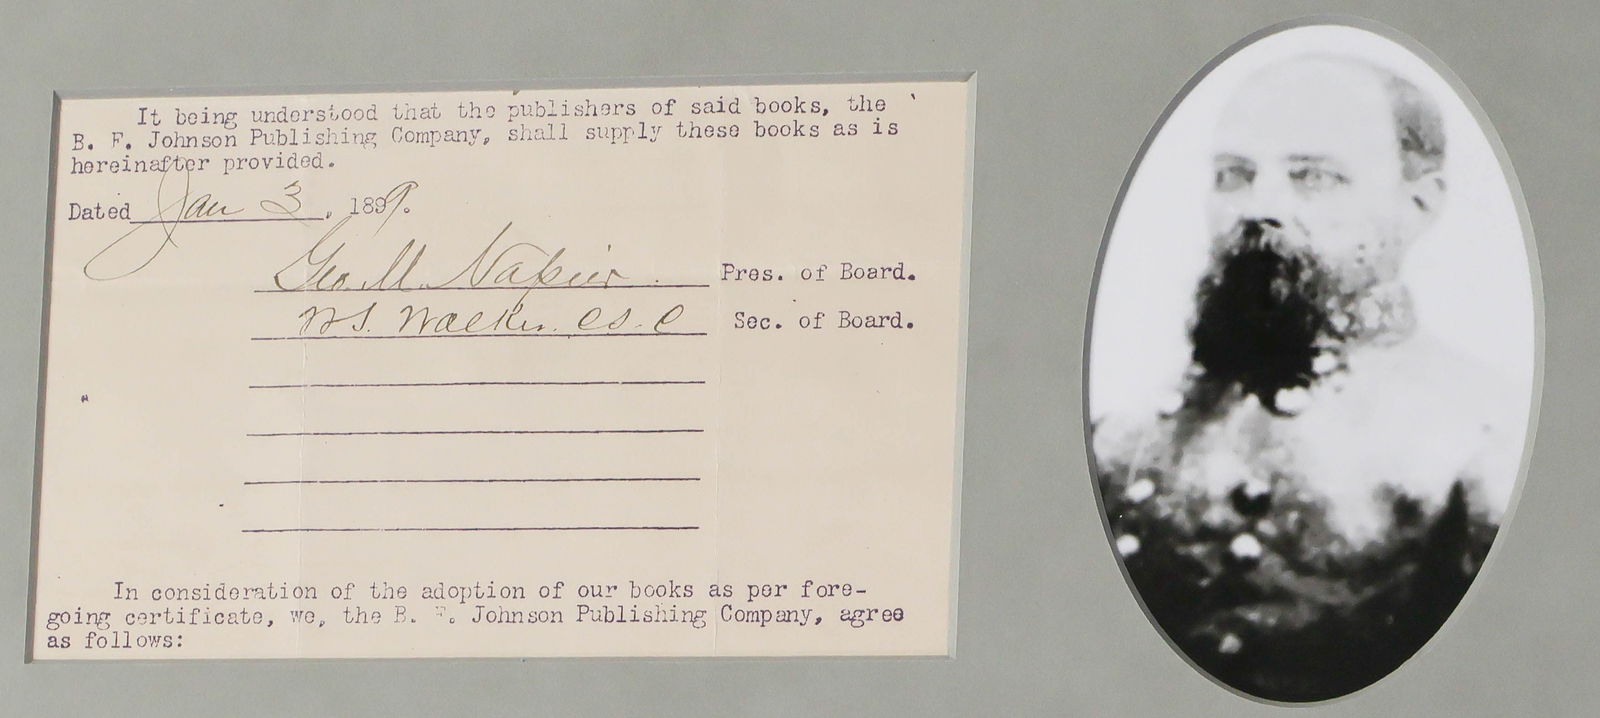 It being understood that the publishers of said books, the
B. F. Johnson Publishing Company, shall supply these books as is
hereinafter provided.
Dated Jan 3, 1899.
Geo. M. Napier Pres. of Board.
W S. Walker. C S. C Sec. of Board.
In consideration of the adoption of our books as per fore-
going certificate, we, the B. F. Johnson Publishing Company, agree
as follows: